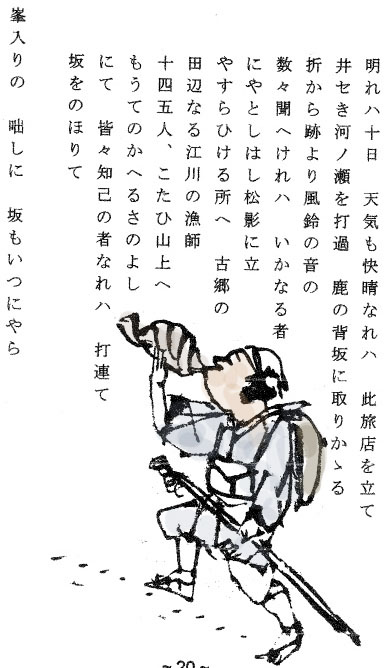 明れハ十日　天気も快晴なれハ　此旅店を立て
井セき河ノ瀬を打過　鹿の背坂に取りかゝる
折から跡より風鈴の音の
数々聞へけれハ　いかなる者
にやとしはし松影に立
やすらひける所へ　古郷の
田辺なる江川の漁師
十四五人、こたひ山上へ
もうてのかへるさのよし
にて　皆々知己の者なれハ　打連て
坂をのほりて
峯入りの　咄しに　坂もいつにやら
~ 20 ~